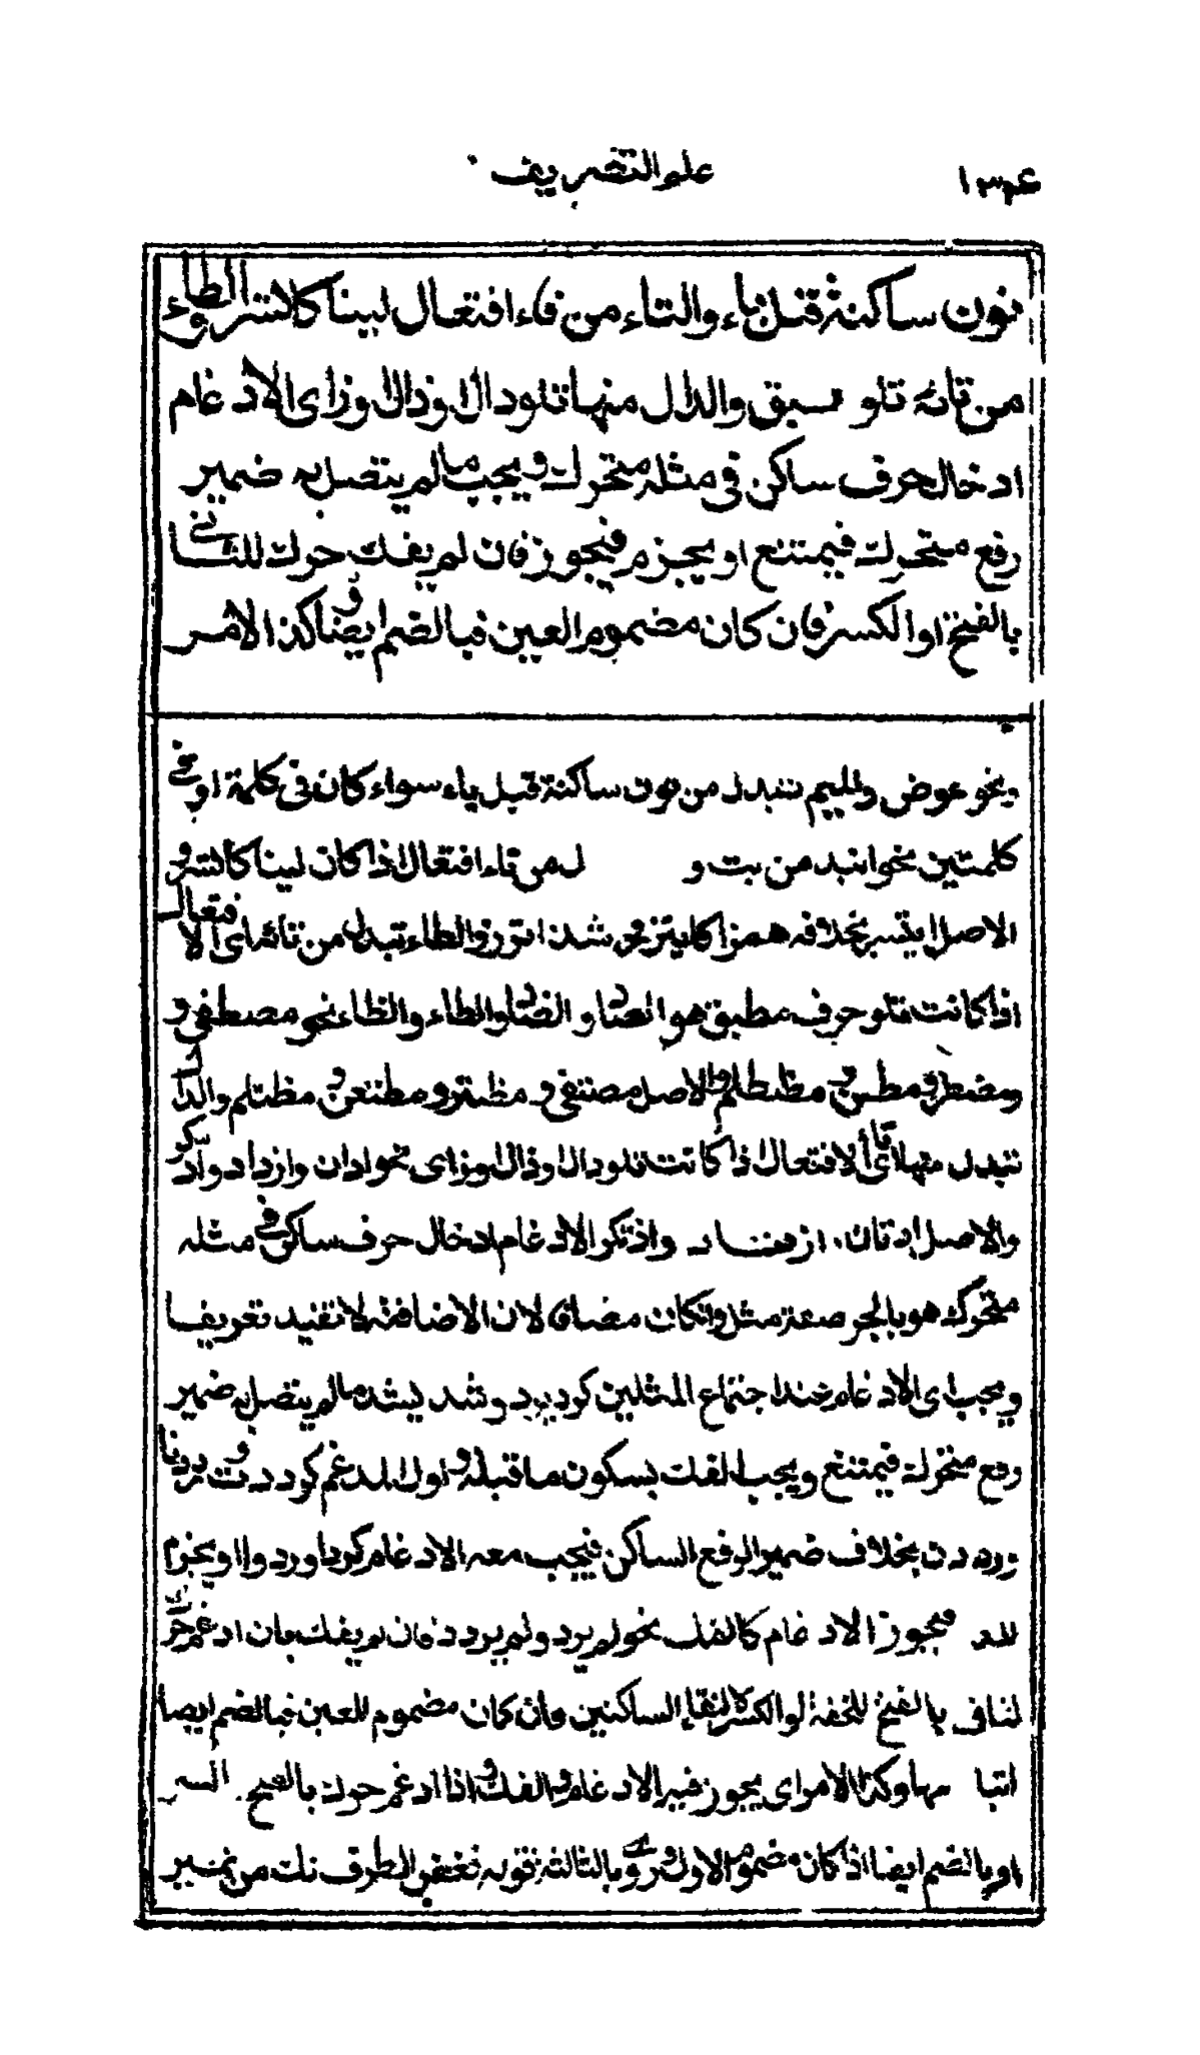 ١٣٤ علم التصريف
نون ساكنة قبل باء والتاء من فاء افتعال لينا كاتسر والطاء
من تائه تلو مطبق والدال منها تلو دال او ذال او زاى الادغام
ادخال حرف ساكن فى مثله متحرك ويجب ما لم يتصل به ضمير
رفع متحرك فيمتنع او يجزم فيجوز فان لم يفك حرك الثانى
بالفتح او الكسر فان كان مضموم العين فبالضم ايضا وكذا الامر
ونحو عوض والميم تبدل من نون ساكنة قبل باء سواء كان فى كلمة او فى
كلمتين نحو انبذ من بت و ل من تاء افتعال اذا كان لينا كاتسر و
الاصل ايتسر بخلافه همزا كايتزر وشذ اتزر والطاء تبدل من تائه اى الافتعال
اذا كانت تلو حرف مطبق هو الصاد والضاد والطاء والظاء نحو مصطفى و
ومضطر ومطعن ومظطلم والاصل مصتفى ومضتر ومطتعن ومظتلم والدال
تبدل منها اى تاء الافتعال اذا كانت تلو دال او ذال او زاى نحو ادان وازداد واذكر
والاصل ادتان وازتاد واذتكر الادغام ادخال حرف ساكن فى مثله
متحرك هو بالجر صفة مثل وان كان مضافا لان الاضافة لا تفيد تعريفا
ويجب اى الادغام عند اجتماع المثلين كرد يرد وشد يشد ما لم يتصل به ضمير
رفع متحرك فيمتنع ويجب الفك بسكون ما قبله واول المدغم كرددت ورددنا
ورددن بخلاف ضمير الرفع الساكن فيجب معه الادغام كردا وردوا او يجزم
فيجوز الادغام كالفك نحو لم يرد ولم يردد فان لم يفك بان ادغم حرك
الثانى بالفتح للخفة او الكسر لالتقاء الساكنين وان كان مضموم العين فبالضم ايضا
اتبا وكذا الامر اى يجوز فيه الادغام والفك واذا ادغم حرك بالفتح
او بالضم ايضا اذا كان مضموم الاول وروى بالثالثة قوله فغض الطرف انك من نمير